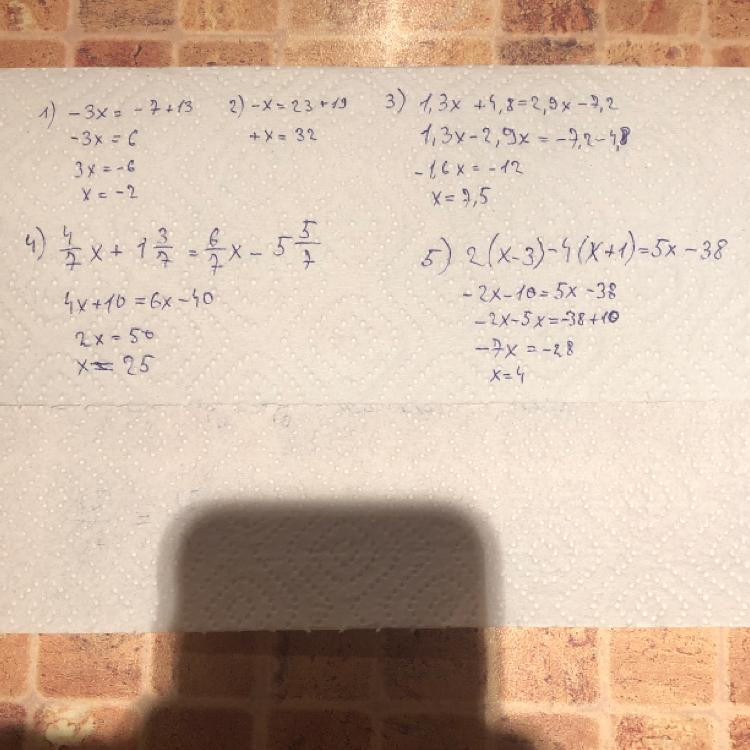 1) -3x = -7+13
-3x = 6
3x = -6
x = -2
2) -x = 23+19
+x = 32
3) 1,3x + 4,8 = 2,9x - 7,2
1,3x - 2,9x = -7,2-4,8
-1,6x = -12
x = 7,5
4) 4/7 x + 1 3/7 = 6/7 x - 5 5/7
4x+10 = 6x-40
2x = 50
x = 25
5) 2(x-3)-4(x+1)=5x-38
-2x-10=5x-38
-2x-5x=-38+10
-7x = -28
x=4